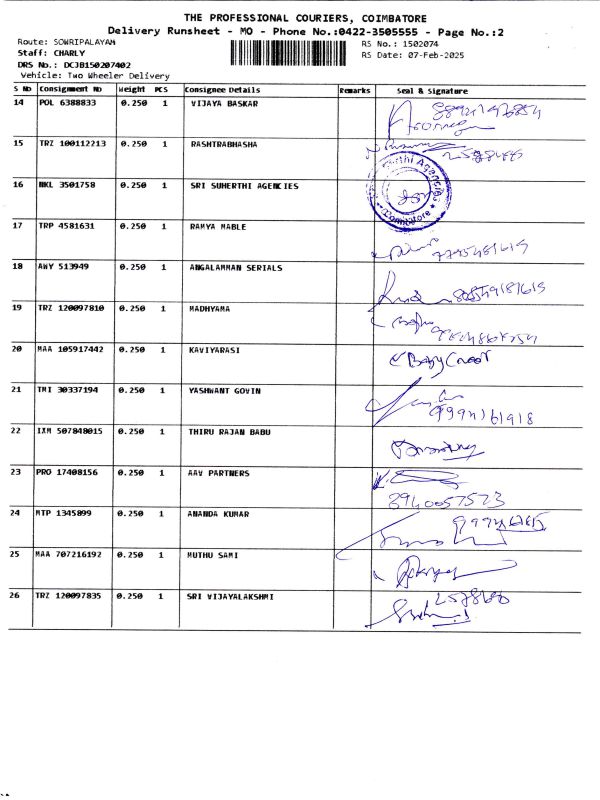 THE PROFESSIONAL COURIERS, COIMBATORE
Delivery Runsheet - MO - Phone No.:0422-3505555 - Page No.:2
Route: SOWRIPALAYAM
RS No.: 1502074
Staff: CHARLY
RS Date: 07-Feb-2025
DRS No.: DCJB150207402
Vehicle: Two Wheeler Delivery
S No Consignment No Weight PCS Consignee Details Remarks Seal & Signature
14 POL 6388833 0.250 1 VIJAYA BASKAR
15 TRZ 100112213 0.250 1 RASHTRABHASHA
16 NKL 3501758 0.250 1 SRI SUHERTHI AGENCIES
Agencies
Coimbatore
17 TRP 4581631 0.250 1 RAMYA MABLE
18 AWY 513949 0.250 1 ANGALAMMAN SERIALS
19 TRZ 120097810 0.250 1 MADHYAMA
20 MAA 105917442 0.250 1 KAVIYARASI
21 TMI 30337194 0.250 1 YASHWANT GOVIN
22 IXM 507848015 0.250 1 THIRU RAJAN BABU
23 PRO 17408156 0.250 1 AAV PARTNERS
8940057523
24 MTP 1345899 0.250 1 ANANDA KUMAR
25 MAA 707216192 0.250 1 MUTHU SAMI
26 TRZ 120097835 0.250 1 SRI VIJAYALAKSHMI